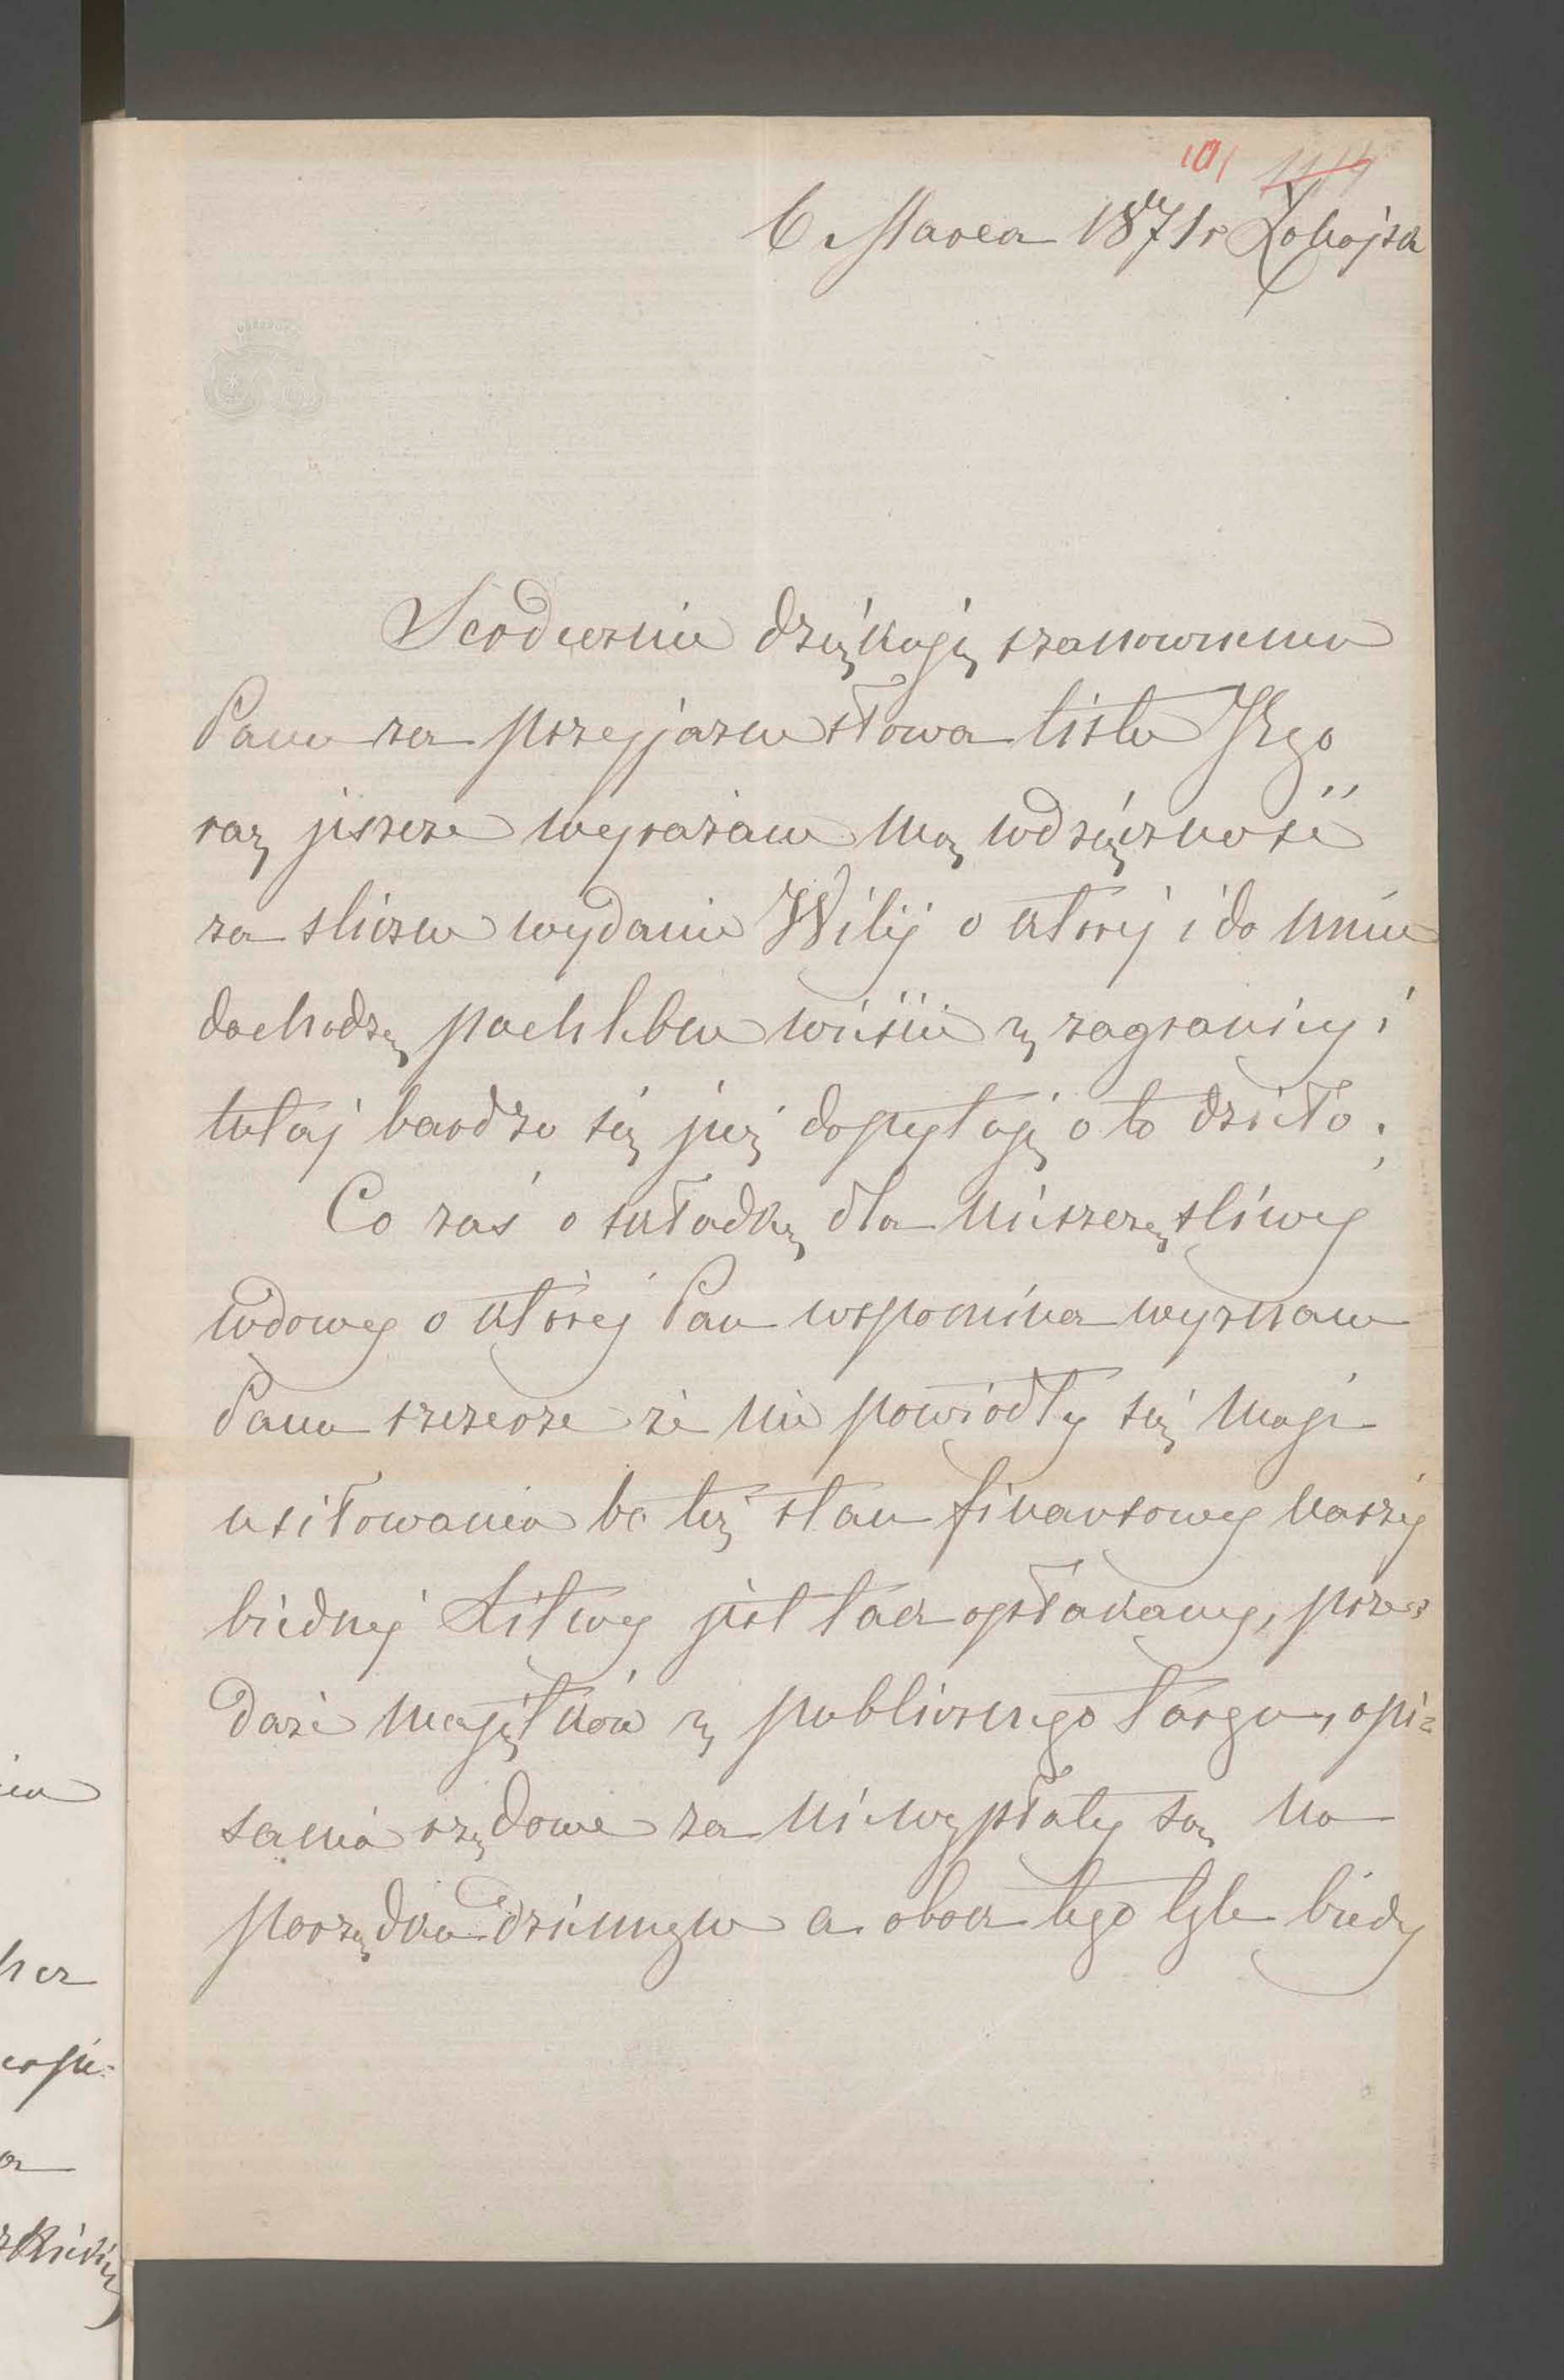 101 1114
6 Marca 1871r Łohojsk
Serdecznie dziękuję szanownemu
Panu za przyjazne słowa listu Jego
raz jeszcze wyrażam mą wdzięczność
za śliczne wydanie Wilij o której i do mnie
dochodzą pochlebne wieście z zagranicy i
tutaj bardzo się jej dopytają o to dzieło;
Co zaś o składkę dla nieszczęśliwej
wdowy o której Pan wspomina wyznam
Panu szczerze że nie powiodły się moje
usiłowania bo też stan finansowy naszej
biednej Litwy jest tak opłakany, prze=
daże majątków z publicznego targu, opi=
sania rządowe za niewypłaty są na
porządku dziennym a obok tego tyle biedy